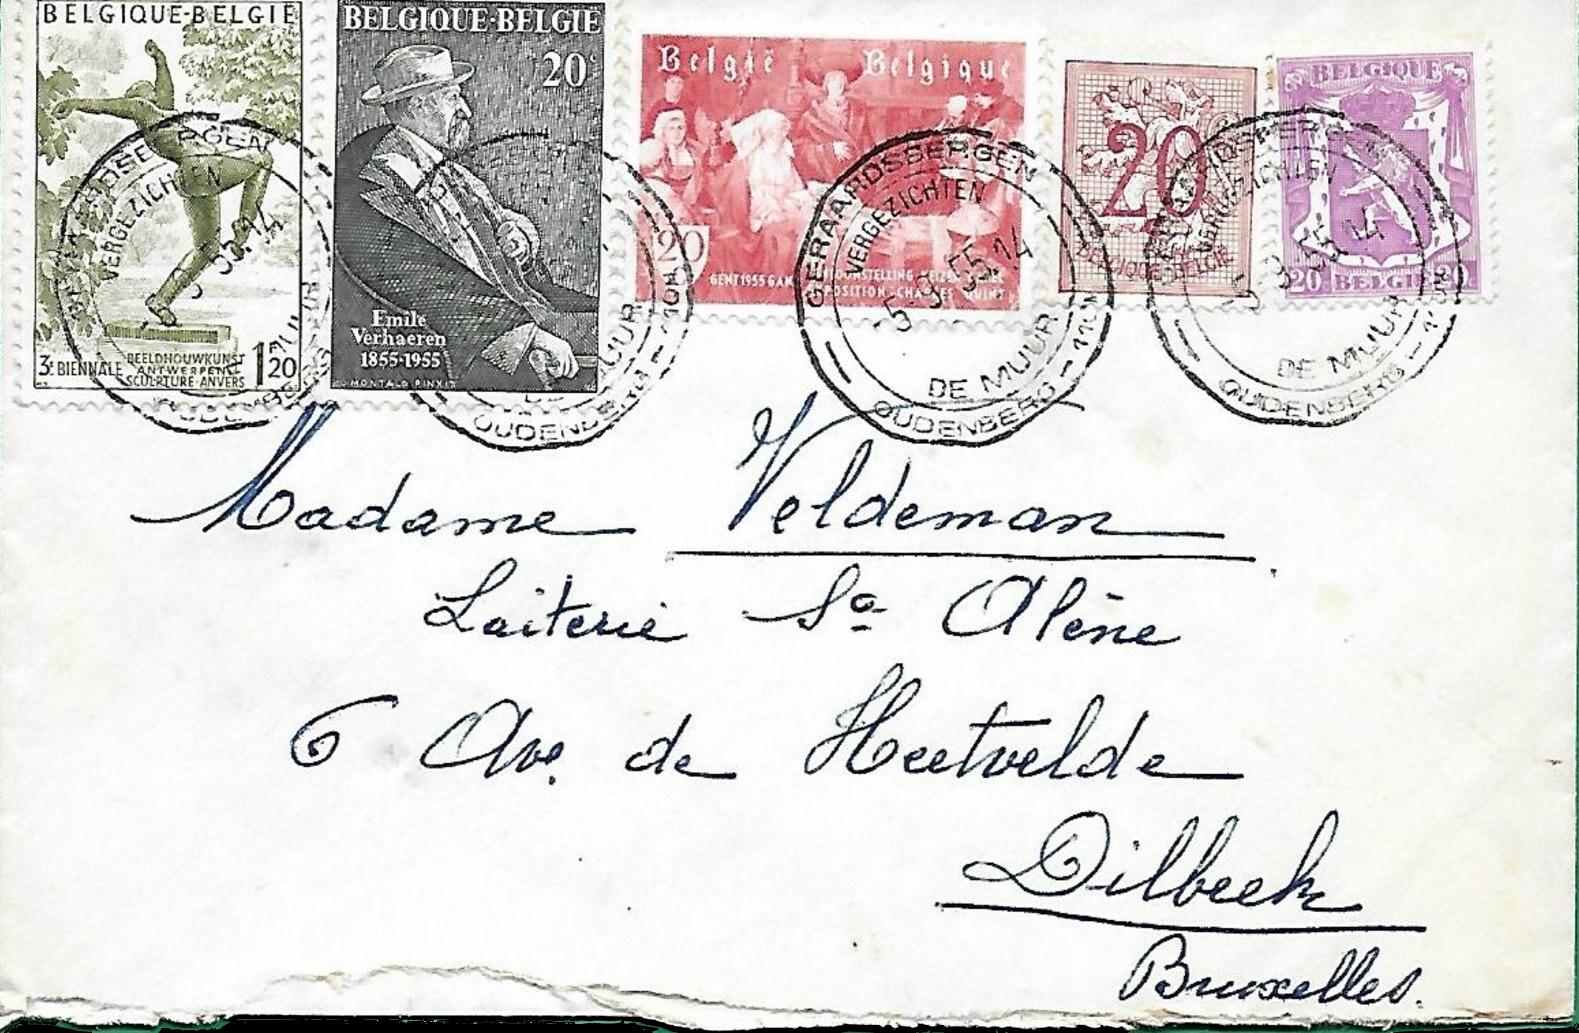 BELGIQUE-BELGIE
3e BIENNALE BEELDHOUWKUNST ANTWERPEN SCULPTURE ANVERS 1F20
BELGIQUE-BELGIE
20c
Emile
Verhaeren
1855-1955
MONTALD PINXIT
België Belgique
20
GENT 1955 GAND
20
BELGIQUE-BELGIE
BELGIQUE
20 BELGIE 20
GERAARDSBERGEN
VERGEZICHTEN
5 3 55 14
DE MUUR
OUDENBERG - 110M
Madame Veldeman
Laiterie Sa Alène
6 Ave. de Heetvelde
Dilbeek
Bruxelles.